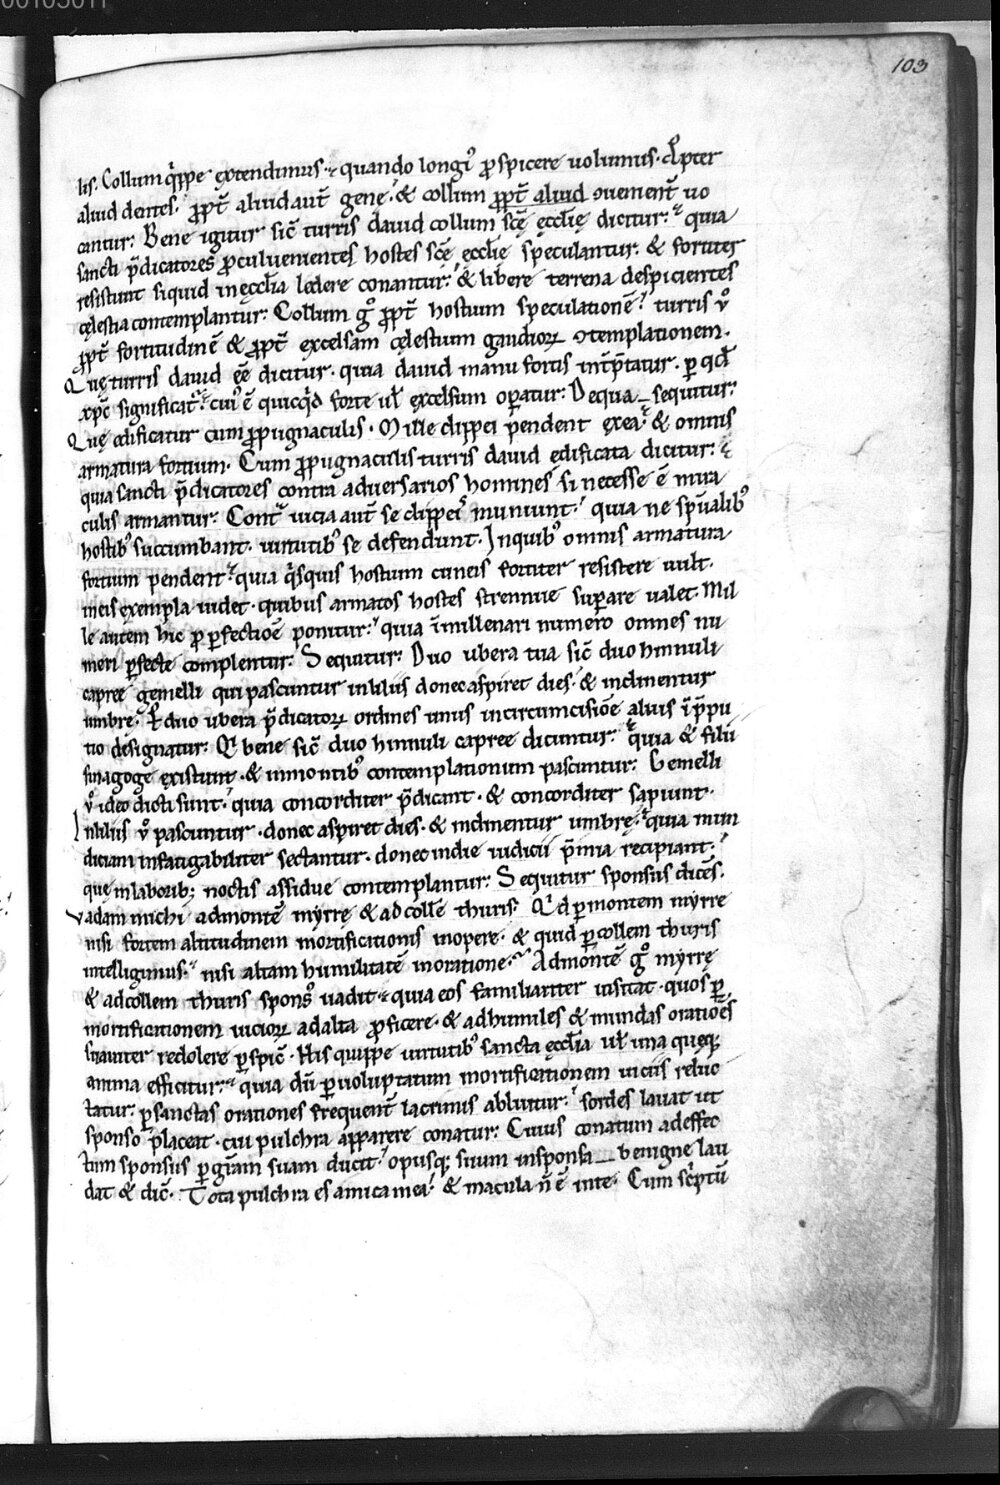 00103011
103
lis. Collum q̈ppe extendimus. quando longi᷒ prospicere uolumus. Propter
aliud dentes. ꝓpt̄ aliud aut̄ genę. & collum ꝓpt̄ aliud ɔuenient̄ uo
cantur: Bene igitur sic̄ turris dauid collum scę̄ ęcclię̄ dicitur: quia
sancti p̄dicatores proculuenientes hostes scę̄ ęcclię̄ speculantur. & fortiter
resistunt siquid inęccl̄ia lędere conantur: & libere terrena despicientes
cęlestia contemplantur: Collum gͦ ꝓpt̄ hostium speculationē. turris uͦ
ꝓpt̄ fortitudinē & ꝓpt̄ excelsam cęlestium gaudioꝝ ɔtemplationem.
Quę turris dauid ēē dicitur. quia dauid manu fortis int̄p̄tatur. ꝑ qd̄
xp̄c significat̄. cui᷒ ē quicq̇d forte ul̄ excelsum oꝑatur: Dequa sequitur:
Quę edificatur cum ꝓpugnaculis. Mille clippei pendent exea. & omnis
armatura fortium. Cum ꝓpugnaculis turris dauid ędificata dicitur:
quia sancti p̄dicatores contra aduersarios homines si necesse ē mira
culis armantur: Cont̄ uicia aut̄ se clippei᷒ muniunt. quia ne sp̄ualib᷒
hostib᷒ succumbant. uirtutib᷒ se defendunt. Inquib᷒ omnis armatura
fortium pendent. quia q̇squis hostium cuneis fortiter resistere uult.
ineis exempla uidet. quibus armatos hostes strennue suꝑare ualet. Mil
le autem hic ꝓ ꝑfectiōe ponitur. quia ī millenari numero omnes nu
meri ꝑfecte complentur: Sequitur: Duo ubera tua sic̄ duo hinnuli
capreę gemelli qui pascuntur inliliis donec aspiret dies. & inclinentur
umbrę. P duo ubera p̄dicatoꝝ ordines unus incircumcisiōe alius ī p̄pu
tio designatur: Qi bene sic̄ duo hinnuli capreę dicuntur. quia & filii
sinagogę existunt. & inmontib᷒ contemplationum pascuntur: Gemelli
uͦ ideo dicti sunt. quia concorditer p̄dicant. & concorditer sapiunt.
Inliliis uͦ pascuntur. donec aspiret dies. & inclinentur umbrę. quia mun
diciam infatigabiliter sectantur. donec indie iudicii p̄mia recipiant.
quę inlaborib; noctis assidue contemplantur: Sequitur sponsus dicēs.
Vadam michi admontē myrrę & ad collē thuris: Qd ꝑ montem myrrę
nisi fortem altitudinem mortificationis inopere. & quid ꝑ collem thuris
intelligimus. nisi altam humilitatē inoratione. Admontē gͦ myrrę
& adcollem thuris spons᷒ uadit. quia eos familiariter uisitat. quos ꝑ
mortificationem uicioꝝ adalta ꝓficere. & adhumiles & mundas oratiōes
suauiter redolere ꝑspic̄. His quippe uirtutib᷒ sancta ęccl̄ia ul̄ una quęq;
anima efficitur. quia dū ꝑ uoluptatum mortificationem uiciis reluc
tatur. ꝑ sanctas orationes frequent̄ lacrimis abluitur. sordes lauat ut
sponso placeat. cui pulchra apparere conatur: Cuius conatum adeffec
tum sponsus ꝑ grām suam ducit. opusq; suum insponsa benigne lau
dat & dic̄. Tota pulchra es amica mea. & macula n̄ ē inte. Cum sc̄ptū